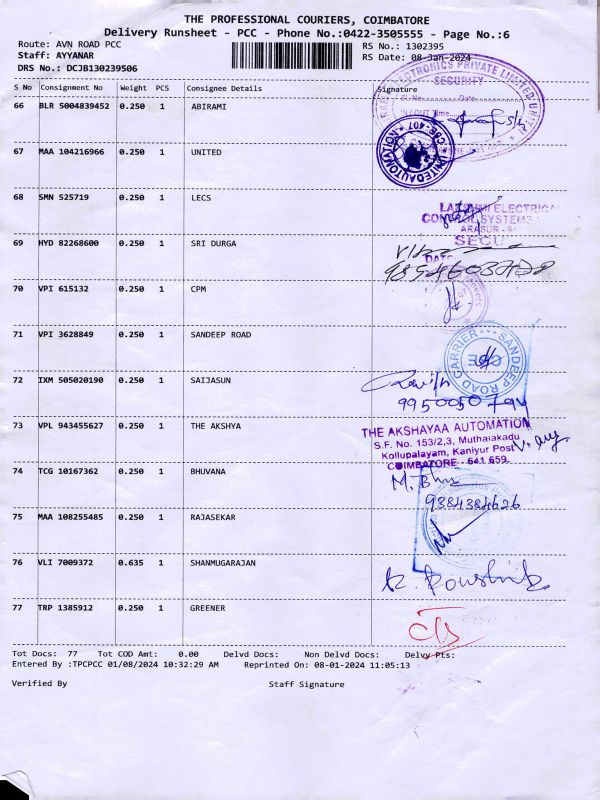 THE PROFESSIONAL COURIERS, COIMBATORE
Delivery Runsheet - PCC - Phone No.:0422-3505555 - Page No.:6
Route: AVN ROAD PCC RS No.: 1302395
Staff: AYYANAR RS Date: 08-Jan-2024
DRS No.: DCJB130239506
S No Consignment No Weight PCS Consignee Details Signature
66 BLR 5004839452 0.250 1 ABIRAMI
ELECTRONICS PRIVATE LIMITED UNIT
SECURITY
Sl. No. Date
IN / OUT Time
67 MAA 104216966 0.250 1 UNITED
UNITED AUTOMATION
CBE-407
68 SMN 525719 0.250 1 LECS
LAKSHMI ELECTRICAL
CONTROL SYSTEMS
ARASUR - 64
SECU
DATE
69 HYD 82268600 0.250 1 SRI DURGA
70 VPI 615132 0.250 1 CPM
71 VPI 3628849 0.250 1 SANDEEP ROAD
SANDEEP ROAD CARRIER
CBE
72 IXM 505020190 0.250 1 SAIJASUN
73 VPL 943455627 0.250 1 THE AKSHYA
THE AKSHAYAA AUTOMATION
S.F. No. 153/2,3, Muthaiakadu
Kollupalayam, Kaniyur Post
COIMBATORE - 641 659.
74 TCG 10167362 0.250 1 BHUVANA
9384384626
75 MAA 108255485 0.250 1 RAJASEKAR
76 VLI 7009372 0.635 1 SHANMUGARAJAN
77 TRP 1385912 0.250 1 GREENER
Tot Docs: 77 Tot COD Amt: 0.00 Delvd Docs: Non Delvd Docs: Delvy Pts:
Entered By :TPCPCC 01/08/2024 10:32:29 AM Reprinted On: 08-01-2024 11:05:13
Verified By Staff Signature